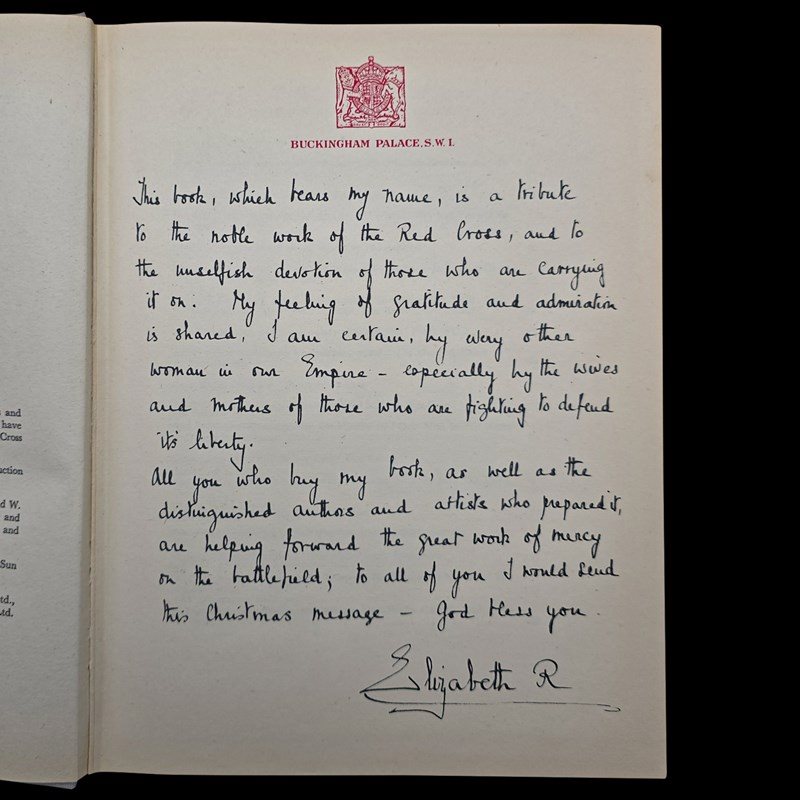 BUCKINGHAM PALACE. S.W. 1.
This book, which bears my name, is a tribute
to the noble work of the Red Cross, and to
the unselfish devotion of those who are carrying
it on. My feeling of gratitude and admiration
is shared, I am certain, by every other
woman in our Empire – especially by the wives
and mothers of those who are fighting to defend
it's liberty.
All you who buy my book, as well as the
distinguished authors and artists who prepared it,
are helping forward the great work of mercy
on the battlefield; to all of you I would send
this Christmas message – God bless you.
Elizabeth R
and
have
Cross
d W.
and
and
Sun
td.,
td.